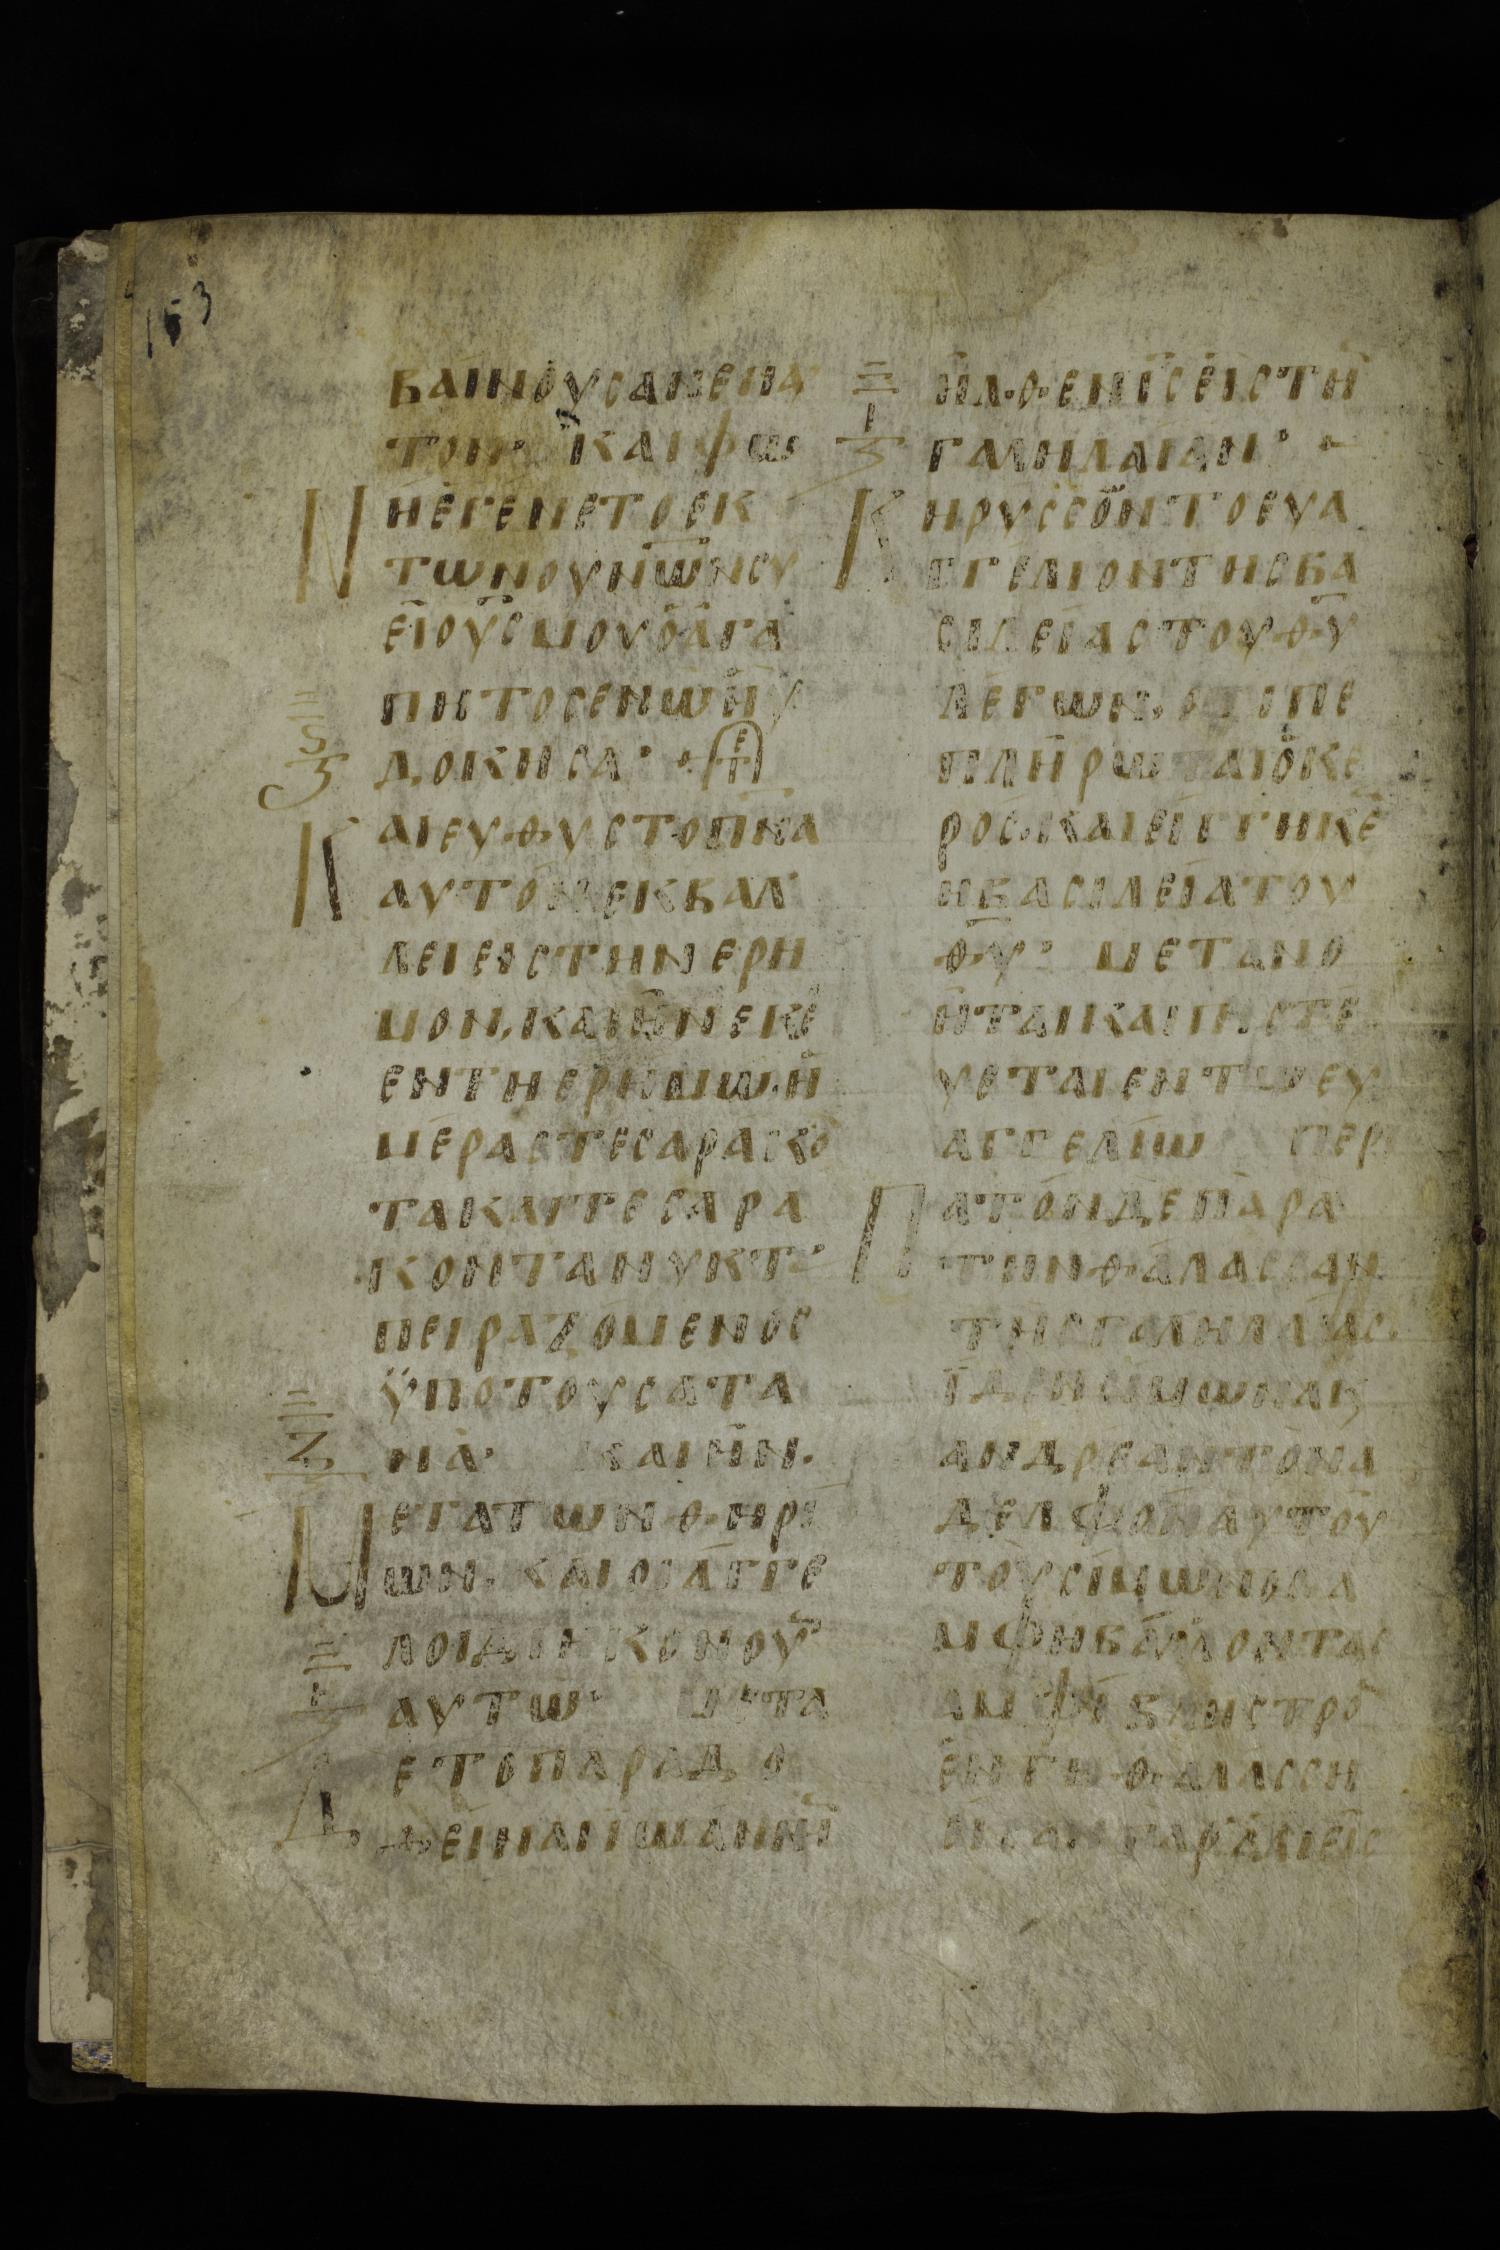 153
ΒΑΙΝΟΥΣΑΝΕΠΑΥ
ΤΟΝ· ΚΑΙΦΩ
ΝΗΕΓΕΝΕΤΟΕΚ
ΤΩΝΟΥΝΩΝΣΥ
ΕΙΟΥΣΜΟΥΟΑΓΑ
ΠΗΤΟΣΕΝΩΗΥ
ΔΟΚΗΣΑ·
ΚΑΙΕΥΘΥΣΤΟΠΝΑ
ΑΥΤΟΝΕΚΒΑΛ
ΛΕΙΕΙΣΤΗΝΕΡΗ
ΜΟΝ,ΚΑΙΗΝΕΚΕ
ΕΝΤΗΕΡΗΜΩ.Η
ΜΕΡΑΣΤΕΣΑΡΑΚΟ
ΤΑΚΑΙΤΕΣΑΡΑ
ΚΟΝΤΑΝΥΚΤ·
ΠΕΙΡΑΖΟΜΕΝΟΣ
ΫΠΟΤΟΥΣΑΤΑ
ΝΑ· ΚΑΙΗΝ.
ΜΕΓΑΤΩΝΘΗΡΙ
ΩΝ. ΚΑΙΟΙΑΓΓΕ
ΛΟΙΔΙΗΚΟΝΟΥ
ΑΥΤΩ· ΜΕΤΑ
ΔΕΤΟΠΑΡΑΔΟ
ΘΕΙΝΑΙΙΩΑΝΝΗ
ΗΛΘΕΝΙΣΕΙΣΤΗ
ΓΑΛΗΛΑΙΑΝ·
ΚΗΡΥΣΣΟΝΤΟΕΥΑ
ΓΓΕΛΙΟΝΤΗΣΒΑ
ΣΙΛΕΙΑΣΤΟΥΘΥ
ΛΕΓΩΝ, ΟΤΙΠΕ
ΠΛΗΡΩΤΑΙΟΚΕ
ΡΟΣ.ΚΑΙΕΙΓΓΗΚΕ
ΗΒΑΣΙΛΕΙΑΤΟΥ
ΘΥ· ΜΕΤΑΝΟ
ΗΤΑΙΚΑΙΠΗΣΤΕ
ΥΕΤΑΙΕΝΤΩΕΥ
ΑΓΓΕΛΙΩ ΠΕΡΙ
ΠΑΤΟΝΔΕΠΑΡΑ
ΤΗΝΘΑΛΑΣΣΑΝ
ΤΗΣΓΑΛΗΛΑΙΑΣ.
ΪΔΕΝΣΙΜΩΝΑΚ
ΑΝΔΡΕΑΝΤΟΝΑ
ΔΕΛΦΟΝΑΥΤΟΥ
ΤΟΥΣΙΜΩΝΟΣΑ
ΜΦΗΒΑΛΛΟΝΤΑΣ
ΑΜΦΙΒΛΗΣΤΡΟ
ΕΝΤΗΘΑΛΑΣΣΗ
ΕΙΣΑΝΓΑΡΑΛΙΕΙΣ